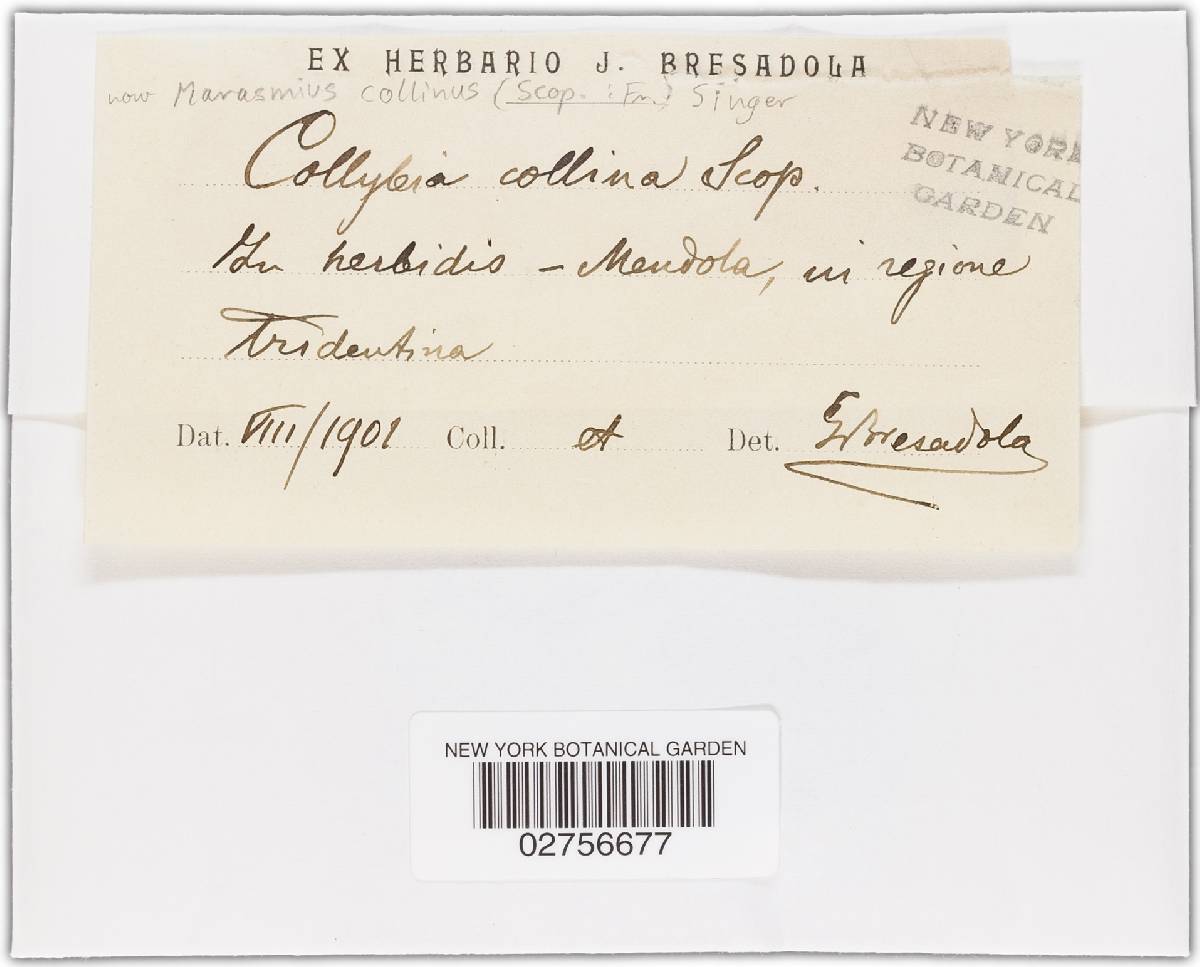 EX HERBARIO J. BRESADOLA
now Marasmius collinus (Scop. : Fr.) Singer
NEW YORK
BOTANICAL
GARDEN
Collybia collina Scop.
In herbidis – Mendola, in regione
tridentina
Dat. VIII/1901 Coll. et Det. Bresadola
NEW YORK BOTANICAL GARDEN
02756677